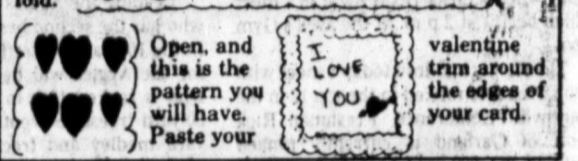 fold.
Open, and
this is the
pattern you
will have.
Paste your
I
LOVE
YOU
valentine
trim around
the edges of
your card.